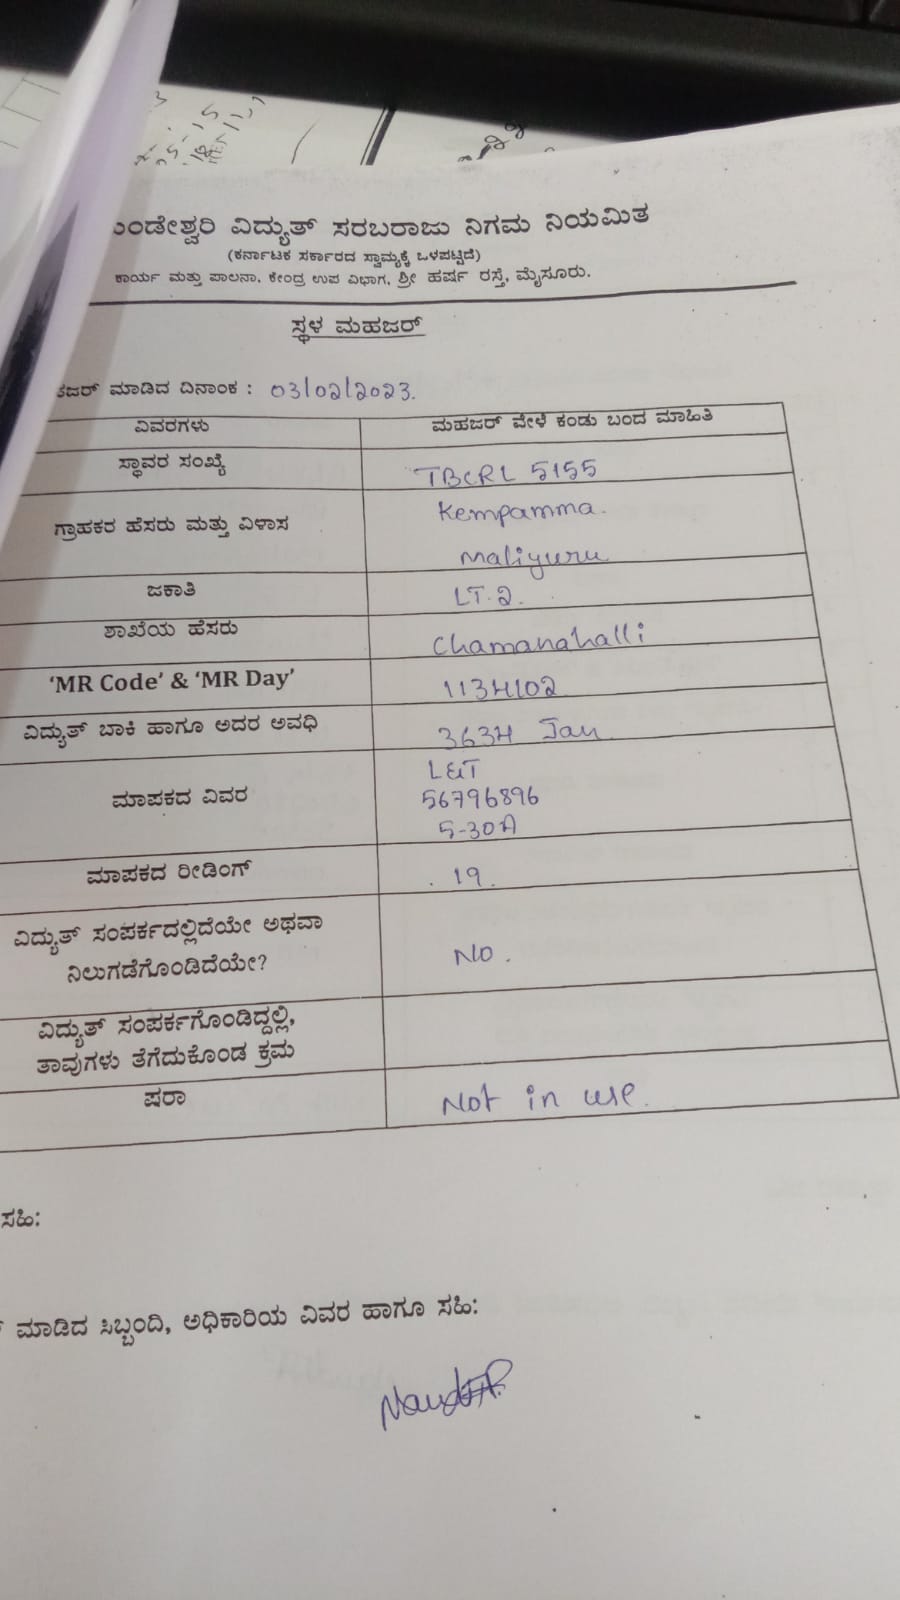 ಂಡೇಶ್ವರಿ ವಿದ್ಯುತ್ ಸರಬರಾಜು ನಿಗಮ ನಿಯಮಿತ
(ಕರ್ನಾಟಕ ಸರ್ಕಾರದ ಸ್ವಾಮ್ಯಕ್ಕೆ ಒಳಪಟ್ಟಿದೆ)
ಕಾರ್ಯ ಮತ್ತು ಪಾಲನಾ, ಕೇಂದ್ರ ಉಪ ವಿಭಾಗ, ಶ್ರೀ ಹರ್ಷ ರಸ್ತೆ, ಮೈಸೂರು.
ಸ್ಥಳ ಮಹಜರ್
ಹಜರ್ ಮಾಡಿದ ದಿನಾಂಕ : 03/02/2023.
ವಿವರಗಳು ಮಹಜರ್ ವೇಳೆ ಕಂಡು ಬಂದ ಮಾಹಿತಿ
ಸ್ಥಾವರ ಸಂಖ್ಯೆ TBCRL 5155
ಗ್ರಾಹಕರ ಹೆಸರು ಮತ್ತು ವಿಳಾಸ Kempamma.
Maliyuru
ಜಕಾತಿ LT-2.
ಶಾಖೆಯ ಹೆಸರು Chamanahalli
'MR Code' & 'MR Day' 1134102
ವಿದ್ಯುತ್ ಬಾಕಿ ಹಾಗೂ ಅದರ ಅವಧಿ 3634 Jan
ಮಾಪಕದ ವಿವರ L&T
56796896
5-30A
ಮಾಪಕದ ರೀಡಿಂಗ್ 19.
ವಿದ್ಯುತ್ ಸಂಪರ್ಕದಲ್ಲಿದೆಯೇ ಅಥವಾ
ನಿಲುಗಡೆಗೊಂಡಿದೆಯೇ? NO.
ವಿದ್ಯುತ್ ಸಂಪರ್ಕಗೊಂಡಿದ್ದಲ್ಲಿ,
ತಾವುಗಳು ತೆಗೆದುಕೊಂಡ ಕ್ರಮ
ಷರಾ Not in use.
ಸಹಿ:
ಮಾಡಿದ ಸಿಬ್ಬಂದಿ, ಅಧಿಕಾರಿಯ ವಿವರ ಹಾಗೂ ಸಹಿ: